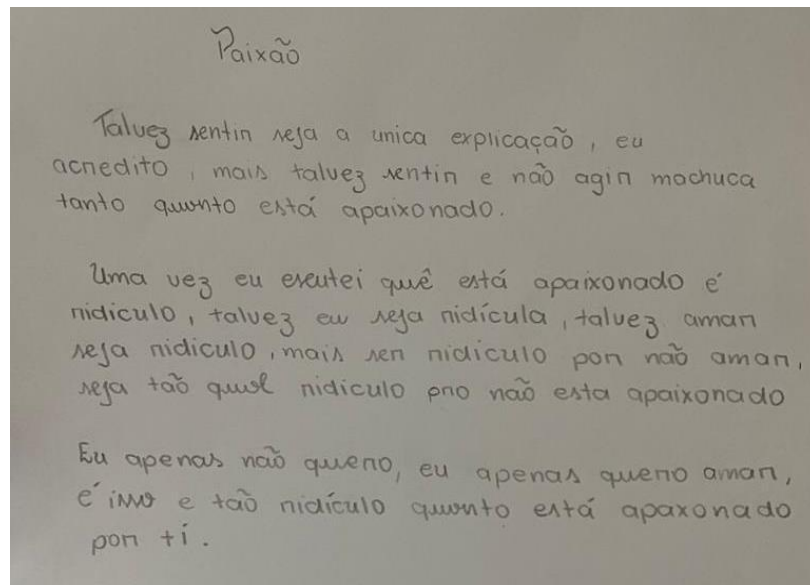 Paixão
Talvez sentir seja a unica explicação, eu
acredito, mais talvez sentir e não agir machuca
tanto quanto está apaixonado.
Uma vez eu escutei quê está apaixonado é
ridiculo, talvez eu seja ridícula, talvez amar
seja ridiculo, mais ser ridículo por não amar,
seja tão qual ridiculo pro não esta apaixonado
Eu apenas não quero, eu apenas quero amar,
é isso e tão ridículo quanto está apaxonado
por tí.